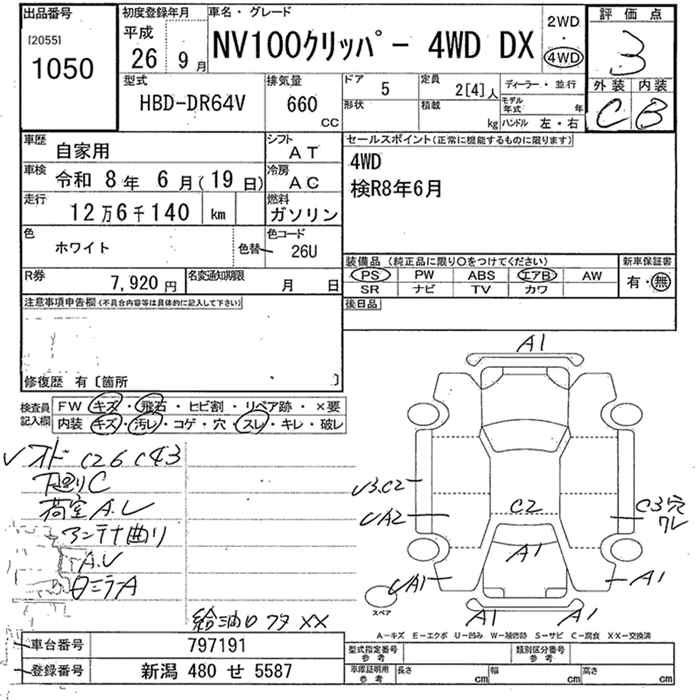 出品番号
[2055]
1050
初度登録年月
平成
26 9月
車名・グレード
NV100クリッパー 4WD DX
2WD
・
4WD
評価点
3
外装 内装
C B
型式
HBD-DR64V
排気量
660
CC
ドア 5
形状
定員 2[4]人
積載 kg
ディーラー・並行
モデル年式 年
ハンドル 左・右
車歴
自家用
シフト
AT
車検
令和 8年 6月(19日)
冷房
AC
走行
12万6千140 km
燃料
ガソリン
色
ホワイト
色替
色コード
26U
R券
7,920円
名変通知期限
月 日
セールスポイント(正常に機能するものに限ります)
4WD
検R8年6月
装備品(純正品に限り○をつけてください)
PS PW ABS エアB AW
SR ナビ TV カワ
新車保証書
有・無
後日品
注意事項申告欄(不具合内容等は具体的に記入して下さい)
修復歴 有〔箇所 〕
検査員
記入欄
FW キズ・飛石・ヒビ割・リペア跡・×要
内装 キズ・汚レ・コゲ・穴・スレ・キレ・破レ
下廻りC
荷室A.U
アンテナ曲り
A.U
給油口フタ XX
A1
C2
A1
U3.C2
UA2
UA1
C3穴
ワレ
A1
A1
A1
スペア
A-キズ E-エクボ U-凹み W-補修跡 S-サビ C-腐食 XX-交換済
車台番号
797191
登録番号
新潟 480 せ 5587
型式指定番号
参考
類別区分番号
参考
車庫証明用
参考
長さ cm 幅 cm 高さ cm